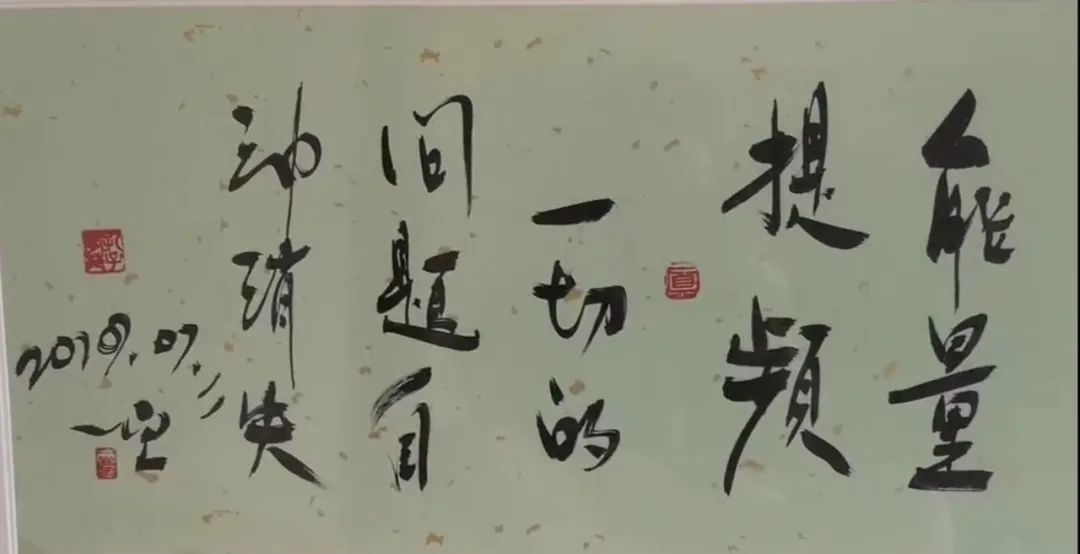 能量
提频
一切的
问题自
动消失
2019.07.